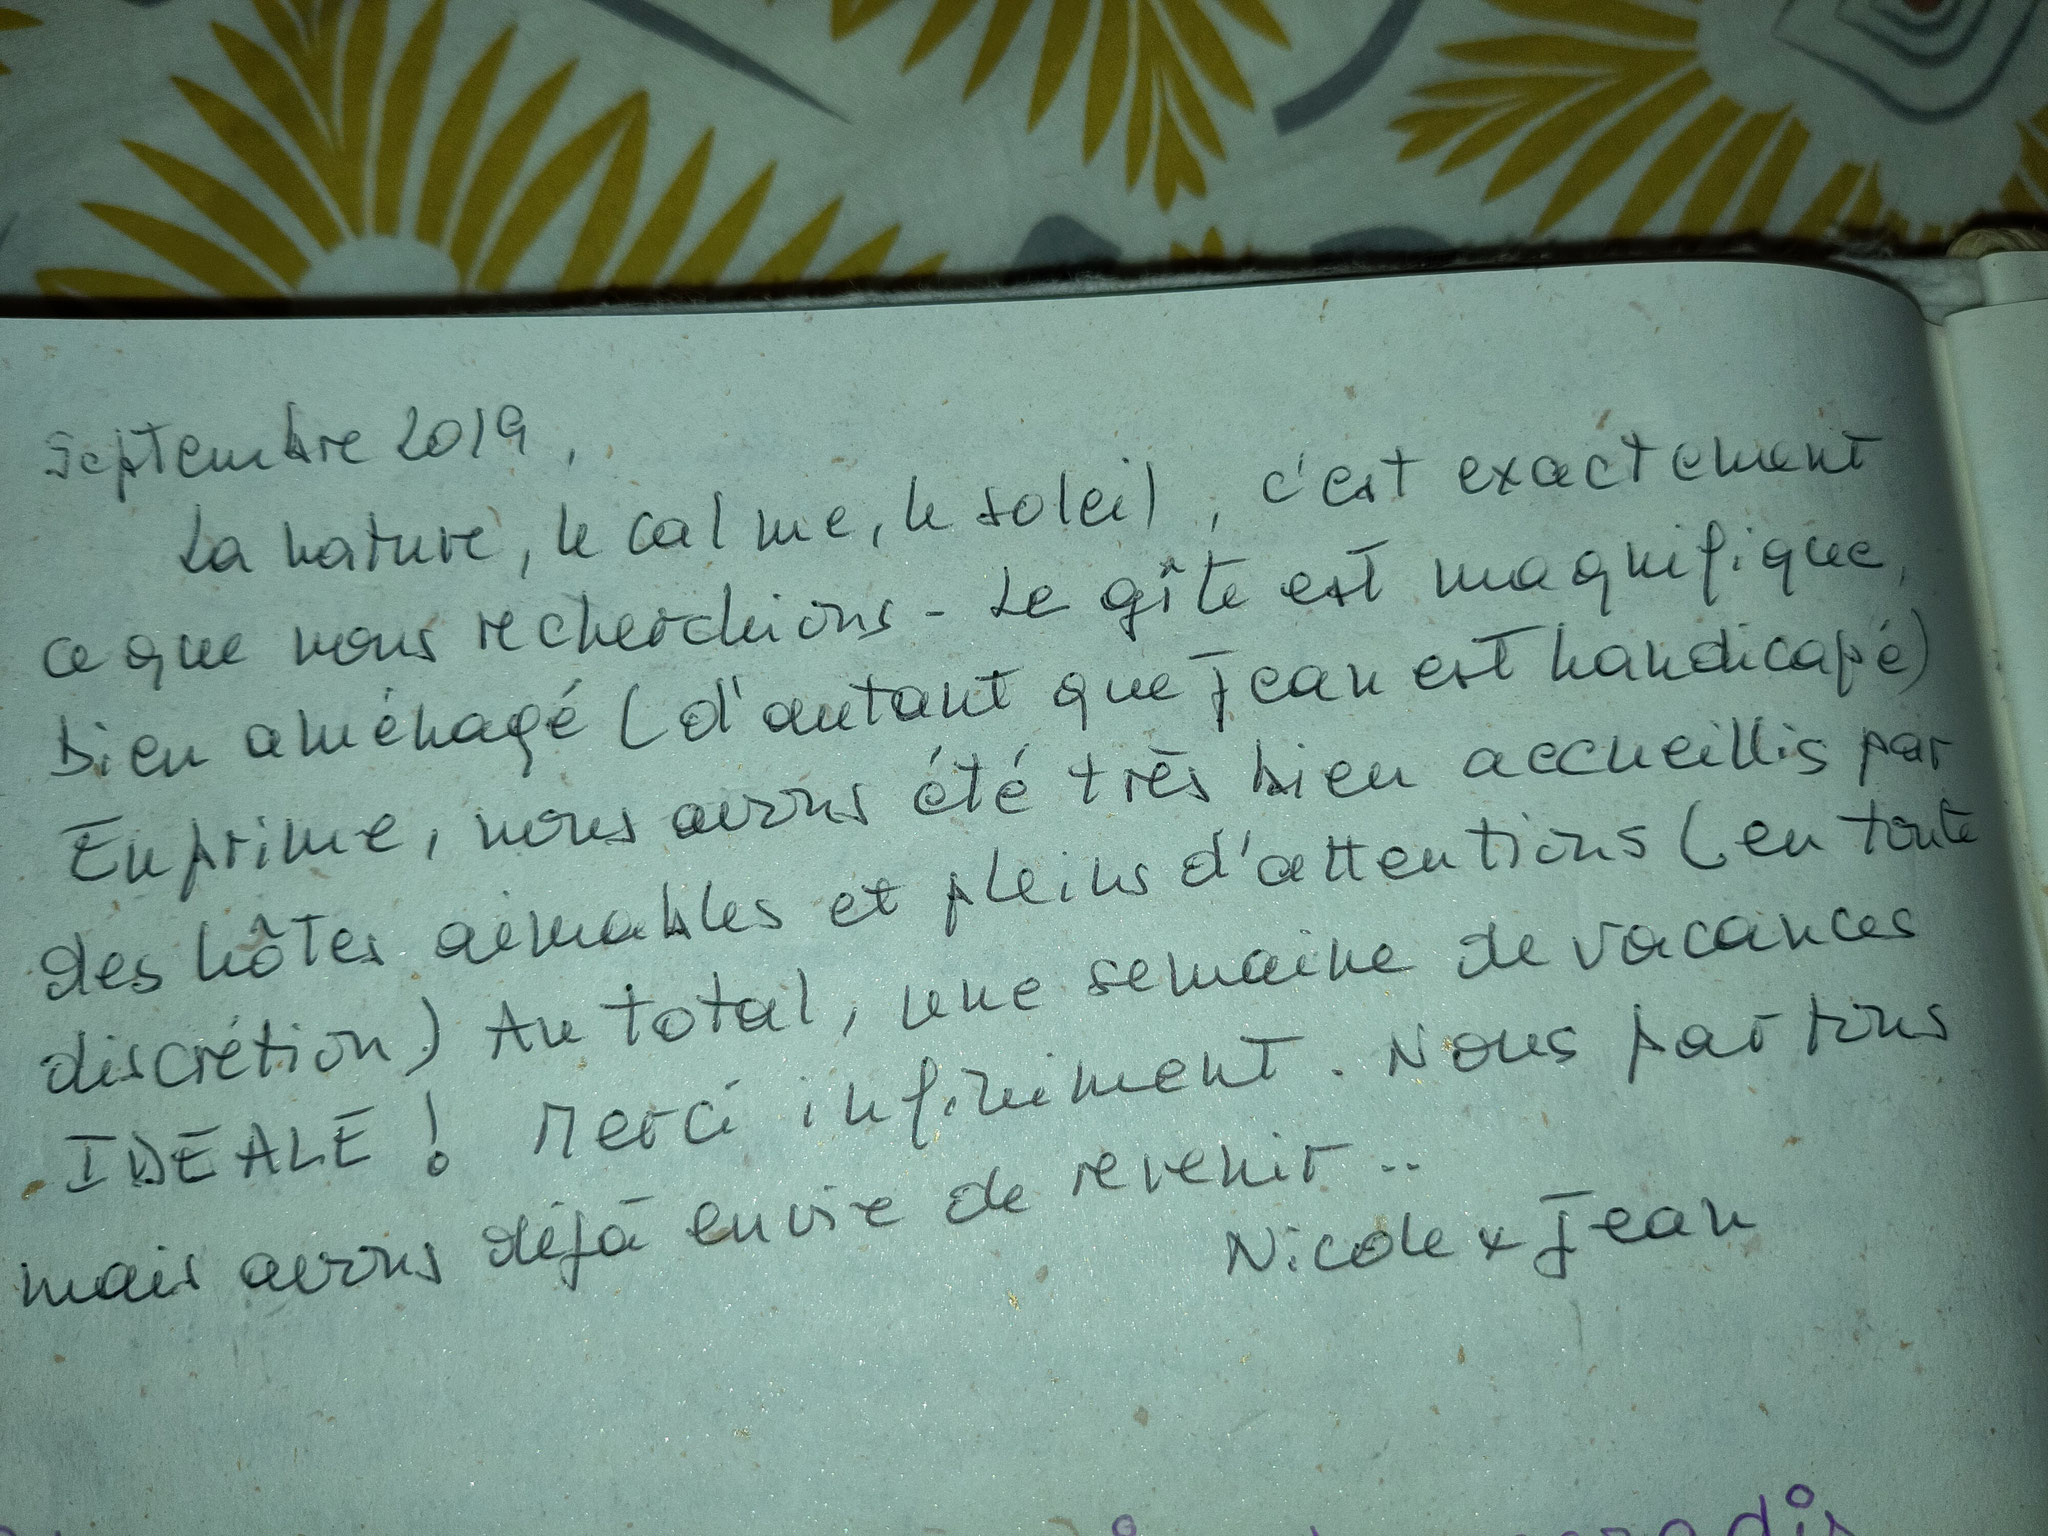 Septembre 2019,
La nature, le calme, le soleil, c'est exactement
ce que nous recherchions - Le gîte est magnifique,
bien aménagé (d'autant que Jean est handicapé)
En prime, nous avons été très bien accueillis par
des hôtes aimables et pleins d'attentions (en toute
discrétion) Au total, une semaine de vacances
IDEALE ! Merci infiniment. Nous partons
mais avons déjà envie de revenir..
Nicole & Jean